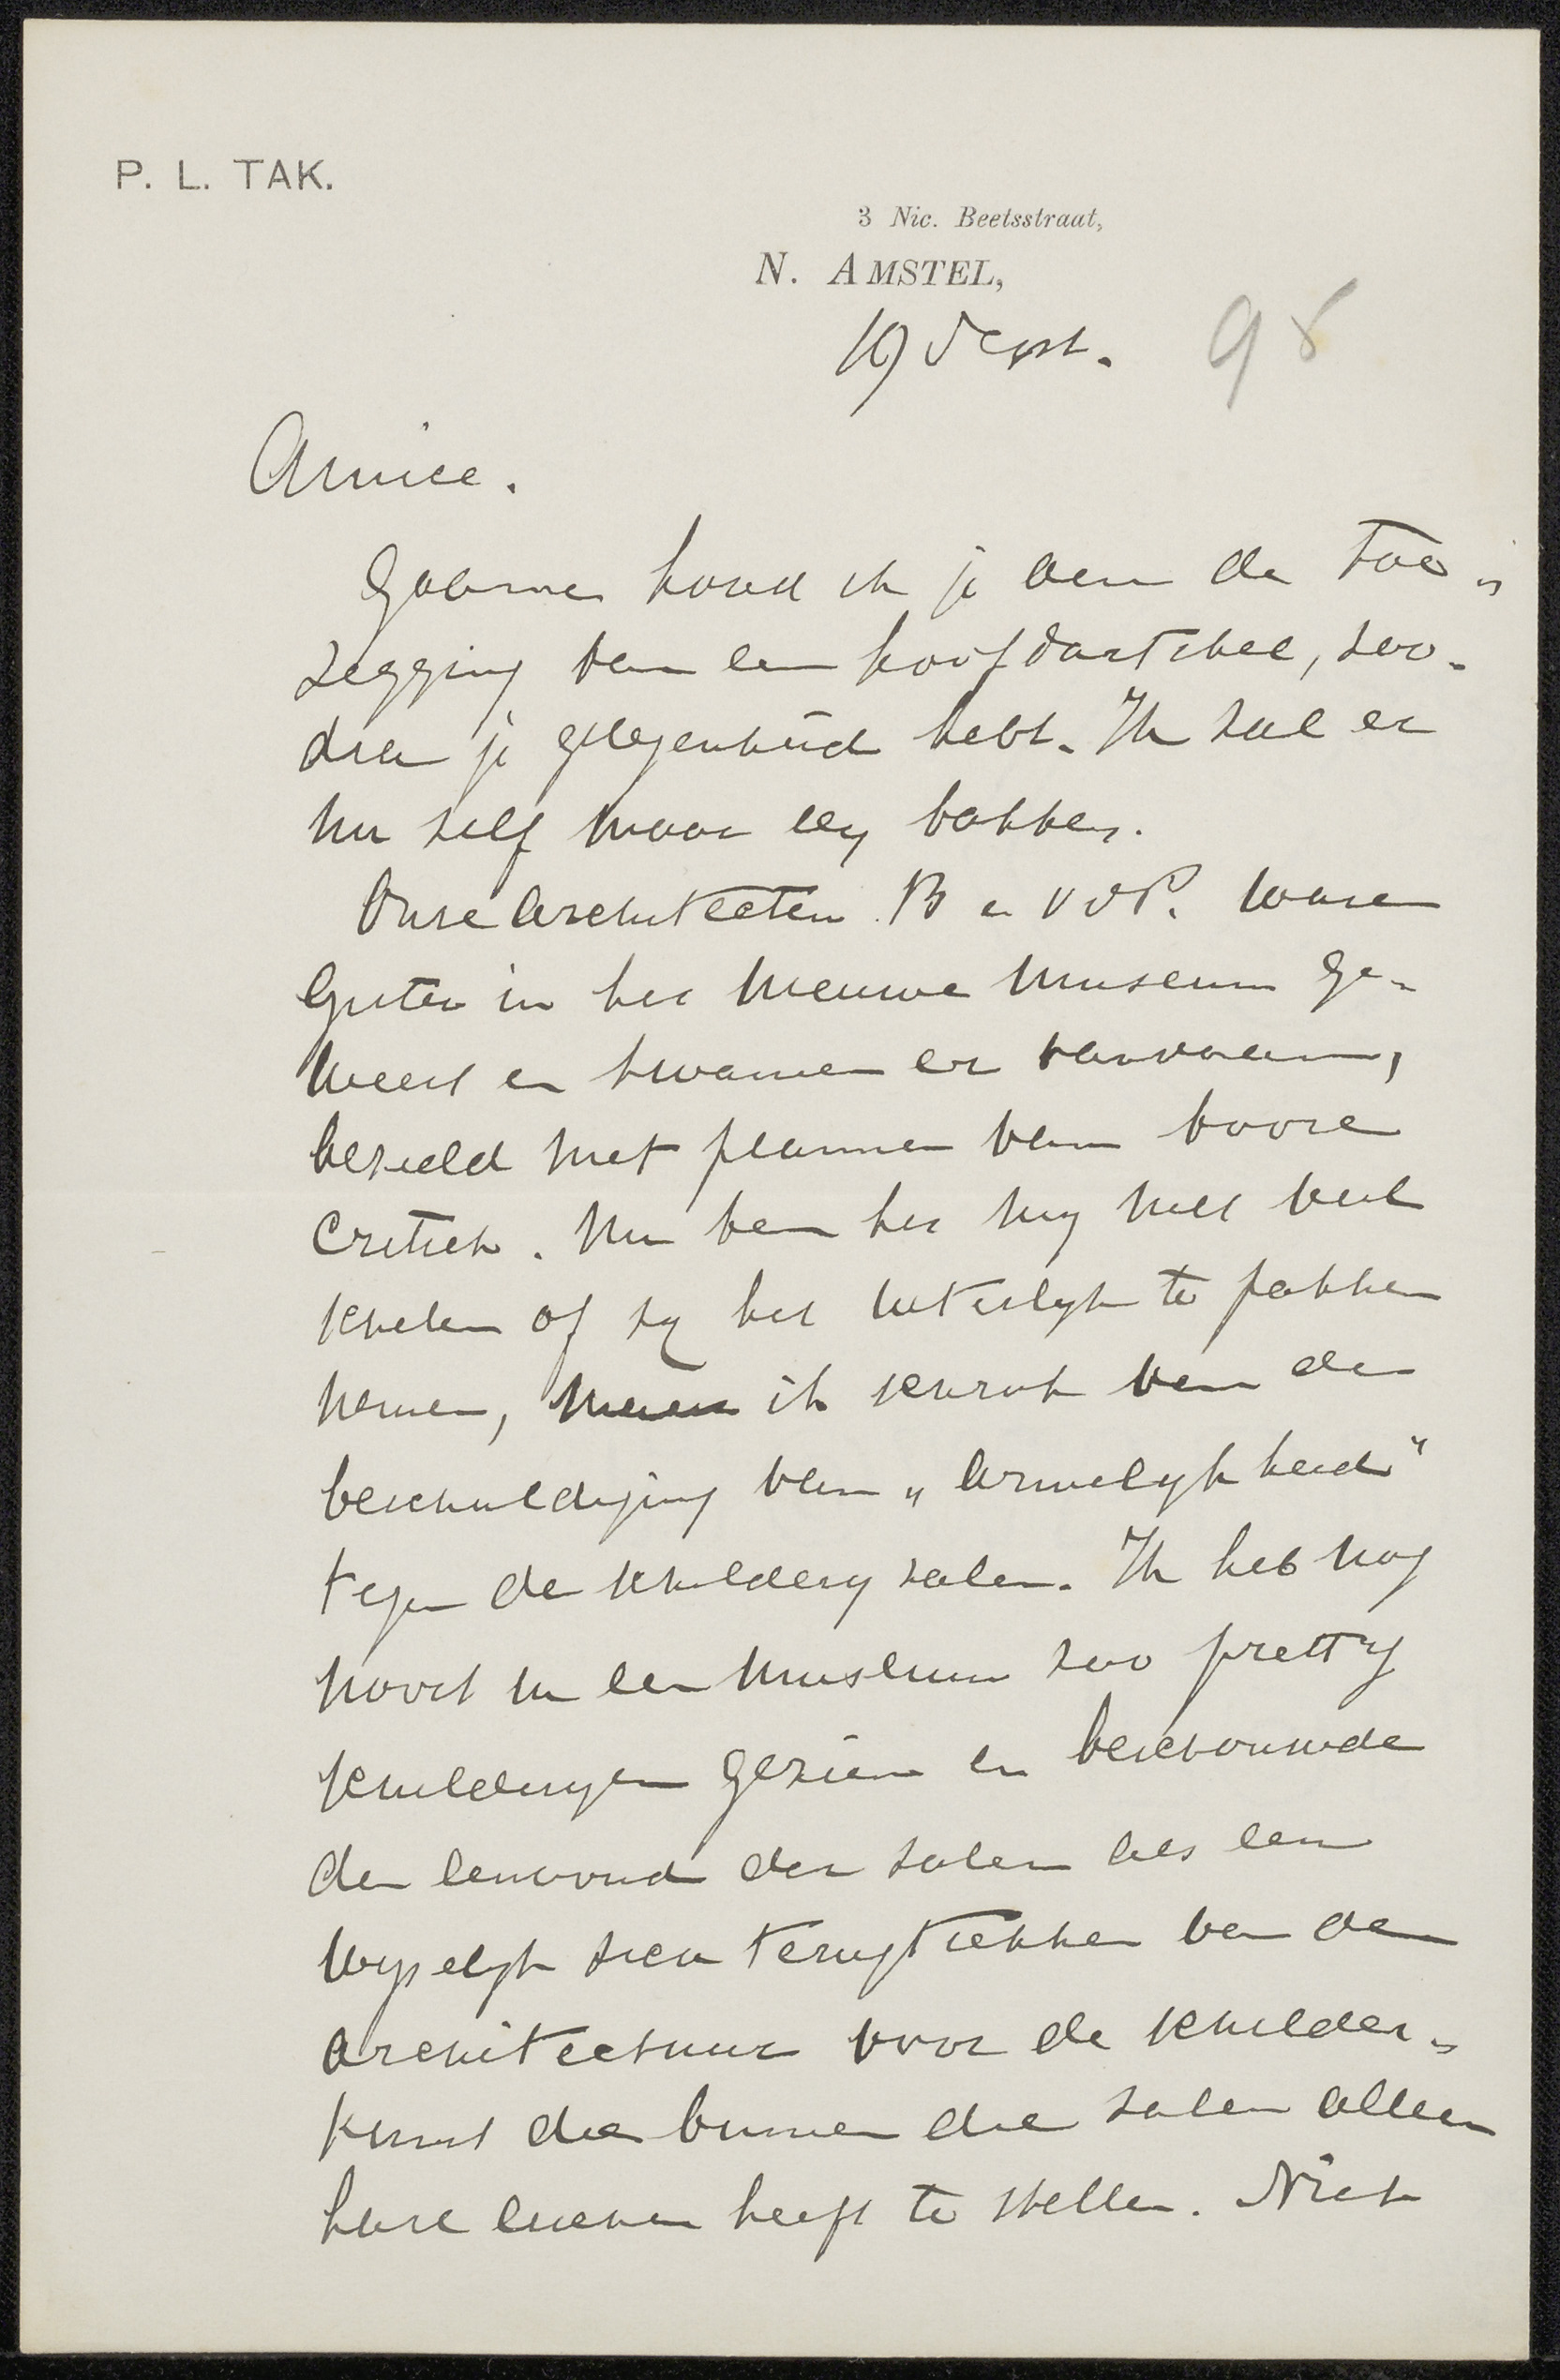 P. L. TAK.
3 Nic. Beetsstraat,
N. AMSTEL,
19 Sept. 95
Amice.
Gaarne houd ik je aan de toe-
zegging van een hoofdartikel, zoo-
dra je gelegenheid hebt. Ik zal er
nu zelf maar een bakken.
Onze architecten B en v d P. waren
gister in het nieuwe museum ge-
weest en kwamen er vandaan,
bezield met plannen van booze
critiek. Nu kan het mij niet veel
schelen of zij het uiterlijk te pakken
nemen, maar ik schrok van de
beschuldiging van „armelijkheid"
tegen de schilderijzalen. Ik heb nog
nooit in een museum zoo prettig
schilderijen gezien en beschouwde
den eenvoud der zalen als een
wijselijk zich terugtrekken van de
architectuur voor de schilder-
kunst die binnen die zalen alleen
hare eischen heeft te stellen. Niet